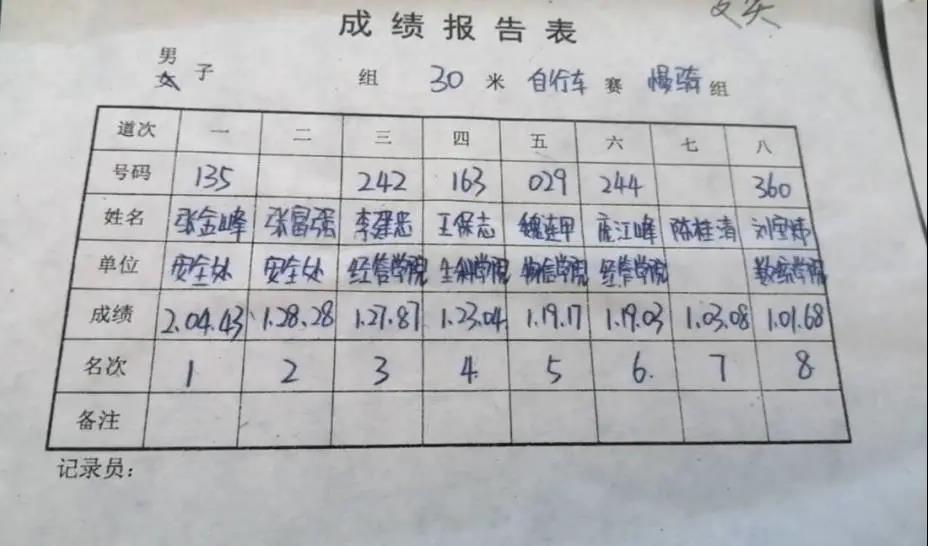 成绩报告表
男
女 子 组 30 米 自行车 赛 慢骑 组
道次 一 二 三 四 五 六 七 八
号码 135 242 163 029 244 360
姓名 张金峰 张富强 李建忠 王保志 魏连甲 庞江峰 陈桂清 刘宝炜
单位 安全处 安全处 经管学院 生科学院 物信学院 经管学院 数综学院
成绩 2.04.43 1.28.28 1.27.87 1.23.04 1.19.17 1.19.03 1.03.08 1.01.68
名次 1 2 3 4 5 6. 7 8
备注
记录员：